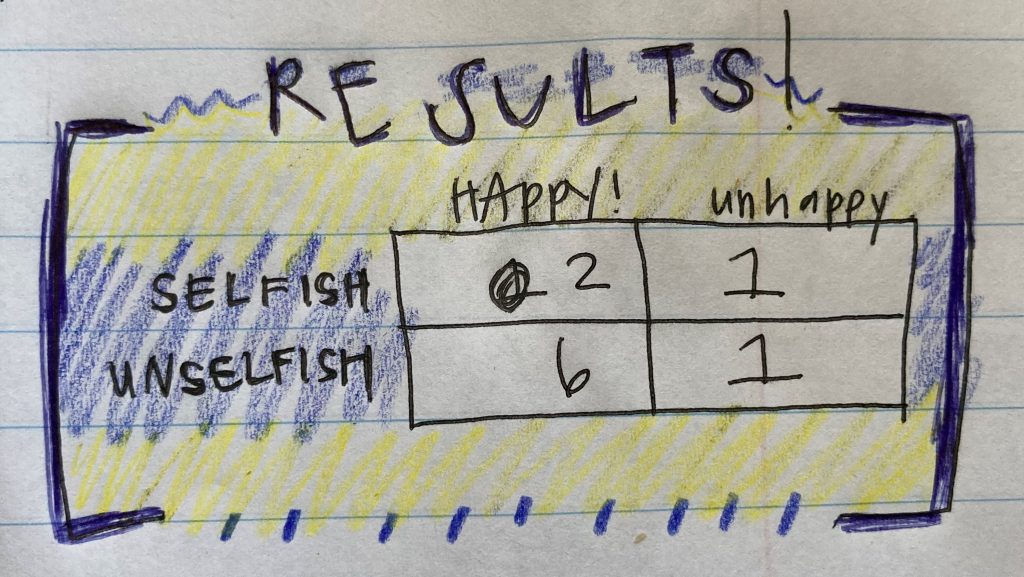 RESULTS!
HAppy! unhappy
SELFISH 2 1
UNSELFISH 6 1